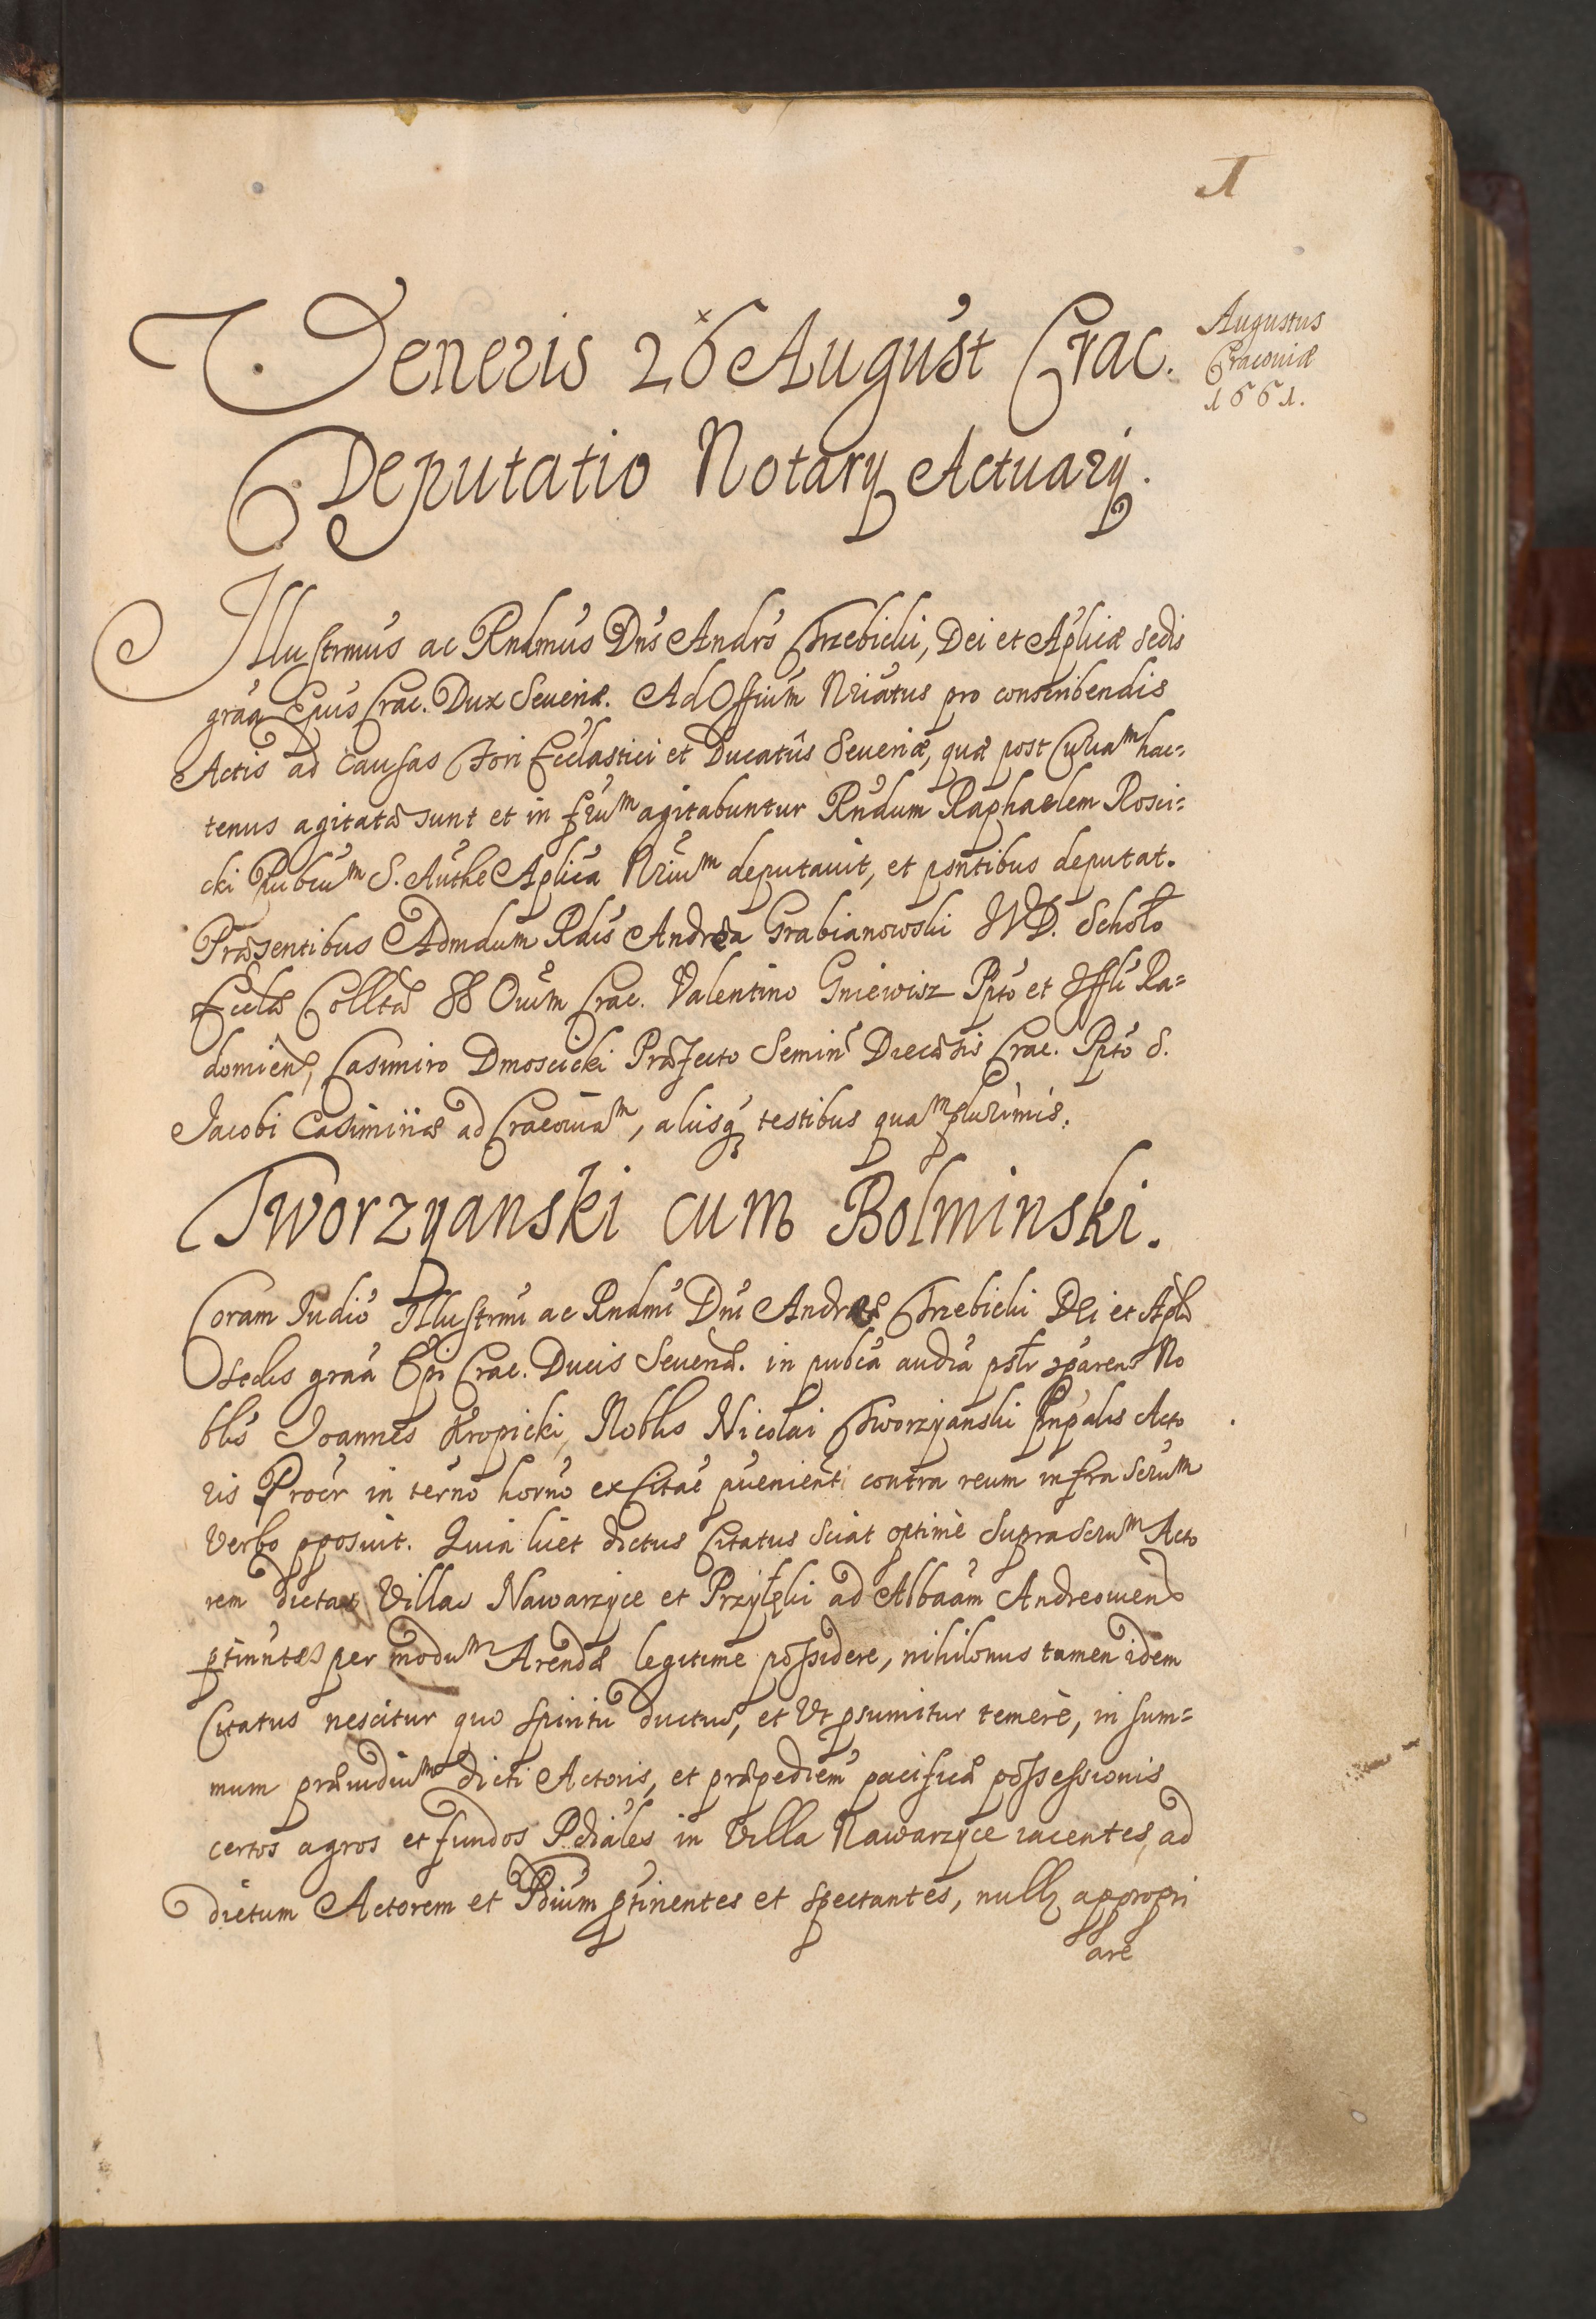 1
Augustus
Cracoviæ
1661.
Veneris 26 August Crac.
Deputatio Notarij Actuarij.
Illustrmus ac Rndmus Dns Andrs Trzebicki, Dei et Aplicæ sedis
graa Epus Crac. Dux Severiæ. Ad Offium Nriatus pro conscribendis
Actis ad causas Fori Eccla­stici et Ducatus Severiæ, quæ post Curiam hac=
tenus agitatæ sunt et in frum agitabuntur Rndum Raphaelem Rosci=
cki Pubcum S. Authe Aplica Nrium deputavit, et pntibus deputat.
Præsentibus Admdum Rdis Andrea Grabianowski JVD. Scholo
Ecclæ Colltæ SS Oium Crac. Valentino Gniewisz Ppto et Offli Ra=
domien, Casimiro Dmoscicki Præfecto Semin Diecæsis Crac. Ppto S.
Jacobi Casimiriæ ad Cracoviam, aliisq testibus quam plurimis.
Tworzyanski cum Bolminski.
Coram Judio Illustrmi ac Rndmi Dni Andreæ Trzebicki Dei et Aplæ
sedis graa Epi Crac. Ducis Severiæ. in pubca audia psltr cparens No
blis Joannes Kropicki, Noblis Nicolai Tworzyanski Pnpalis Acto
ris Procr in terno horno ex Citae pvenienti contra reum infra scrum
verbo pposuit. Quia licet dictus Citatus sciat optime suprascrum Acto
rem dictas Villas Nawarzyce et Przyłęki ad Abbaam Andreovien
ptinntes per modum Arendæ legitime possidere, nihilonus tamen idem
Citatus nescitur quo spiritu ductus, et Ut psumitur temerè, in sum=
mum præiudium dicti Actoris, et præpediem pacificæ possessionis
certos agros et fundos Pdiales in Villa Nawarzyce iacentes, ad
dictum Actorem et Pdium ptinentes et spectantes, nullr appropri
are